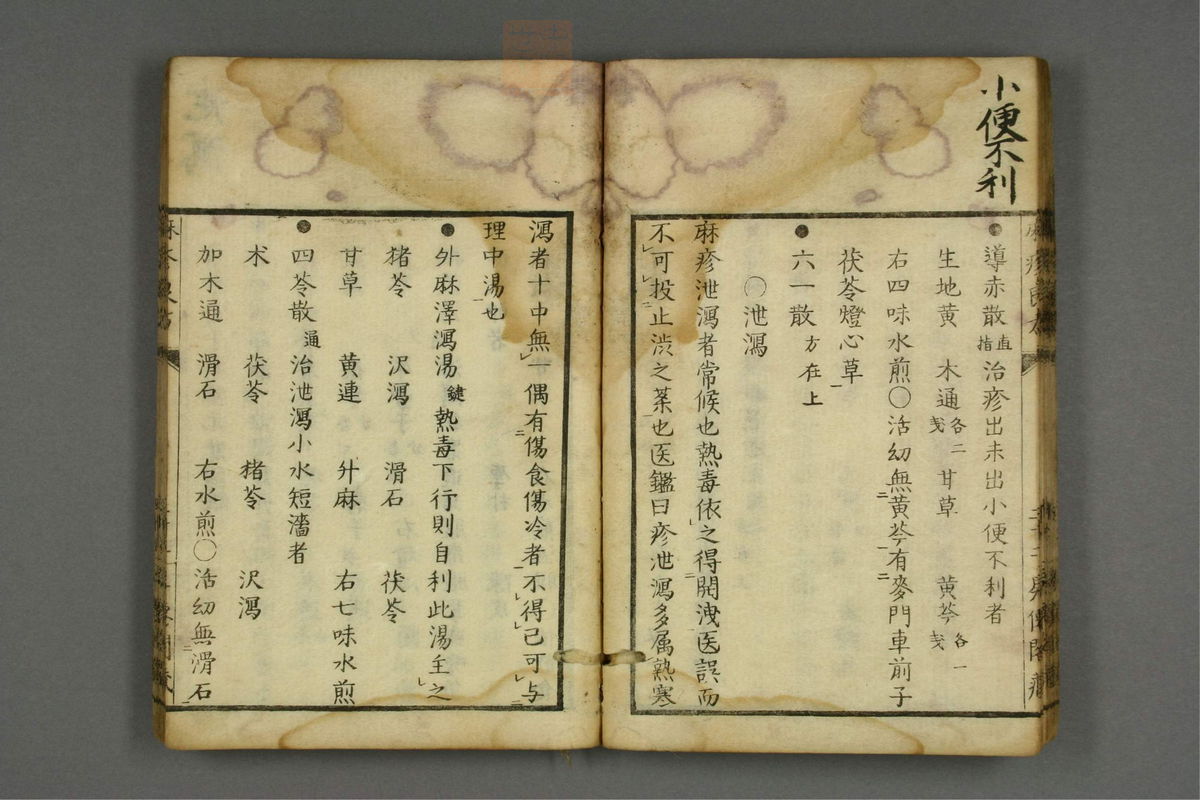 小便不利
●導赤散直指治疹出未出小便不利者
生地黄 木通各二戔 甘草 黄芩各一戔
右四味水煎〇活幼無黄芩有麥門車前子
茯苓燈心草
●六一散方在上
〇泄瀉
麻疹泄瀉者常候也熱毒依之得開洩医誤而
不可投止渋之薬也医鑑曰疹泄瀉多属熱寒
瀉者十中無一偶有傷食傷冷者不得已可与
理中湯也
●外麻澤瀉湯鍵熱毒下行則自利此湯主之
猪苓 沢瀉 滑石 茯苓
甘草 黄連 升麻 右七味水煎
●四苓散通治泄瀉小水短濇者
术 茯苓 猪苓 沢瀉
加木通 滑石 右水煎〇活幼無滑石